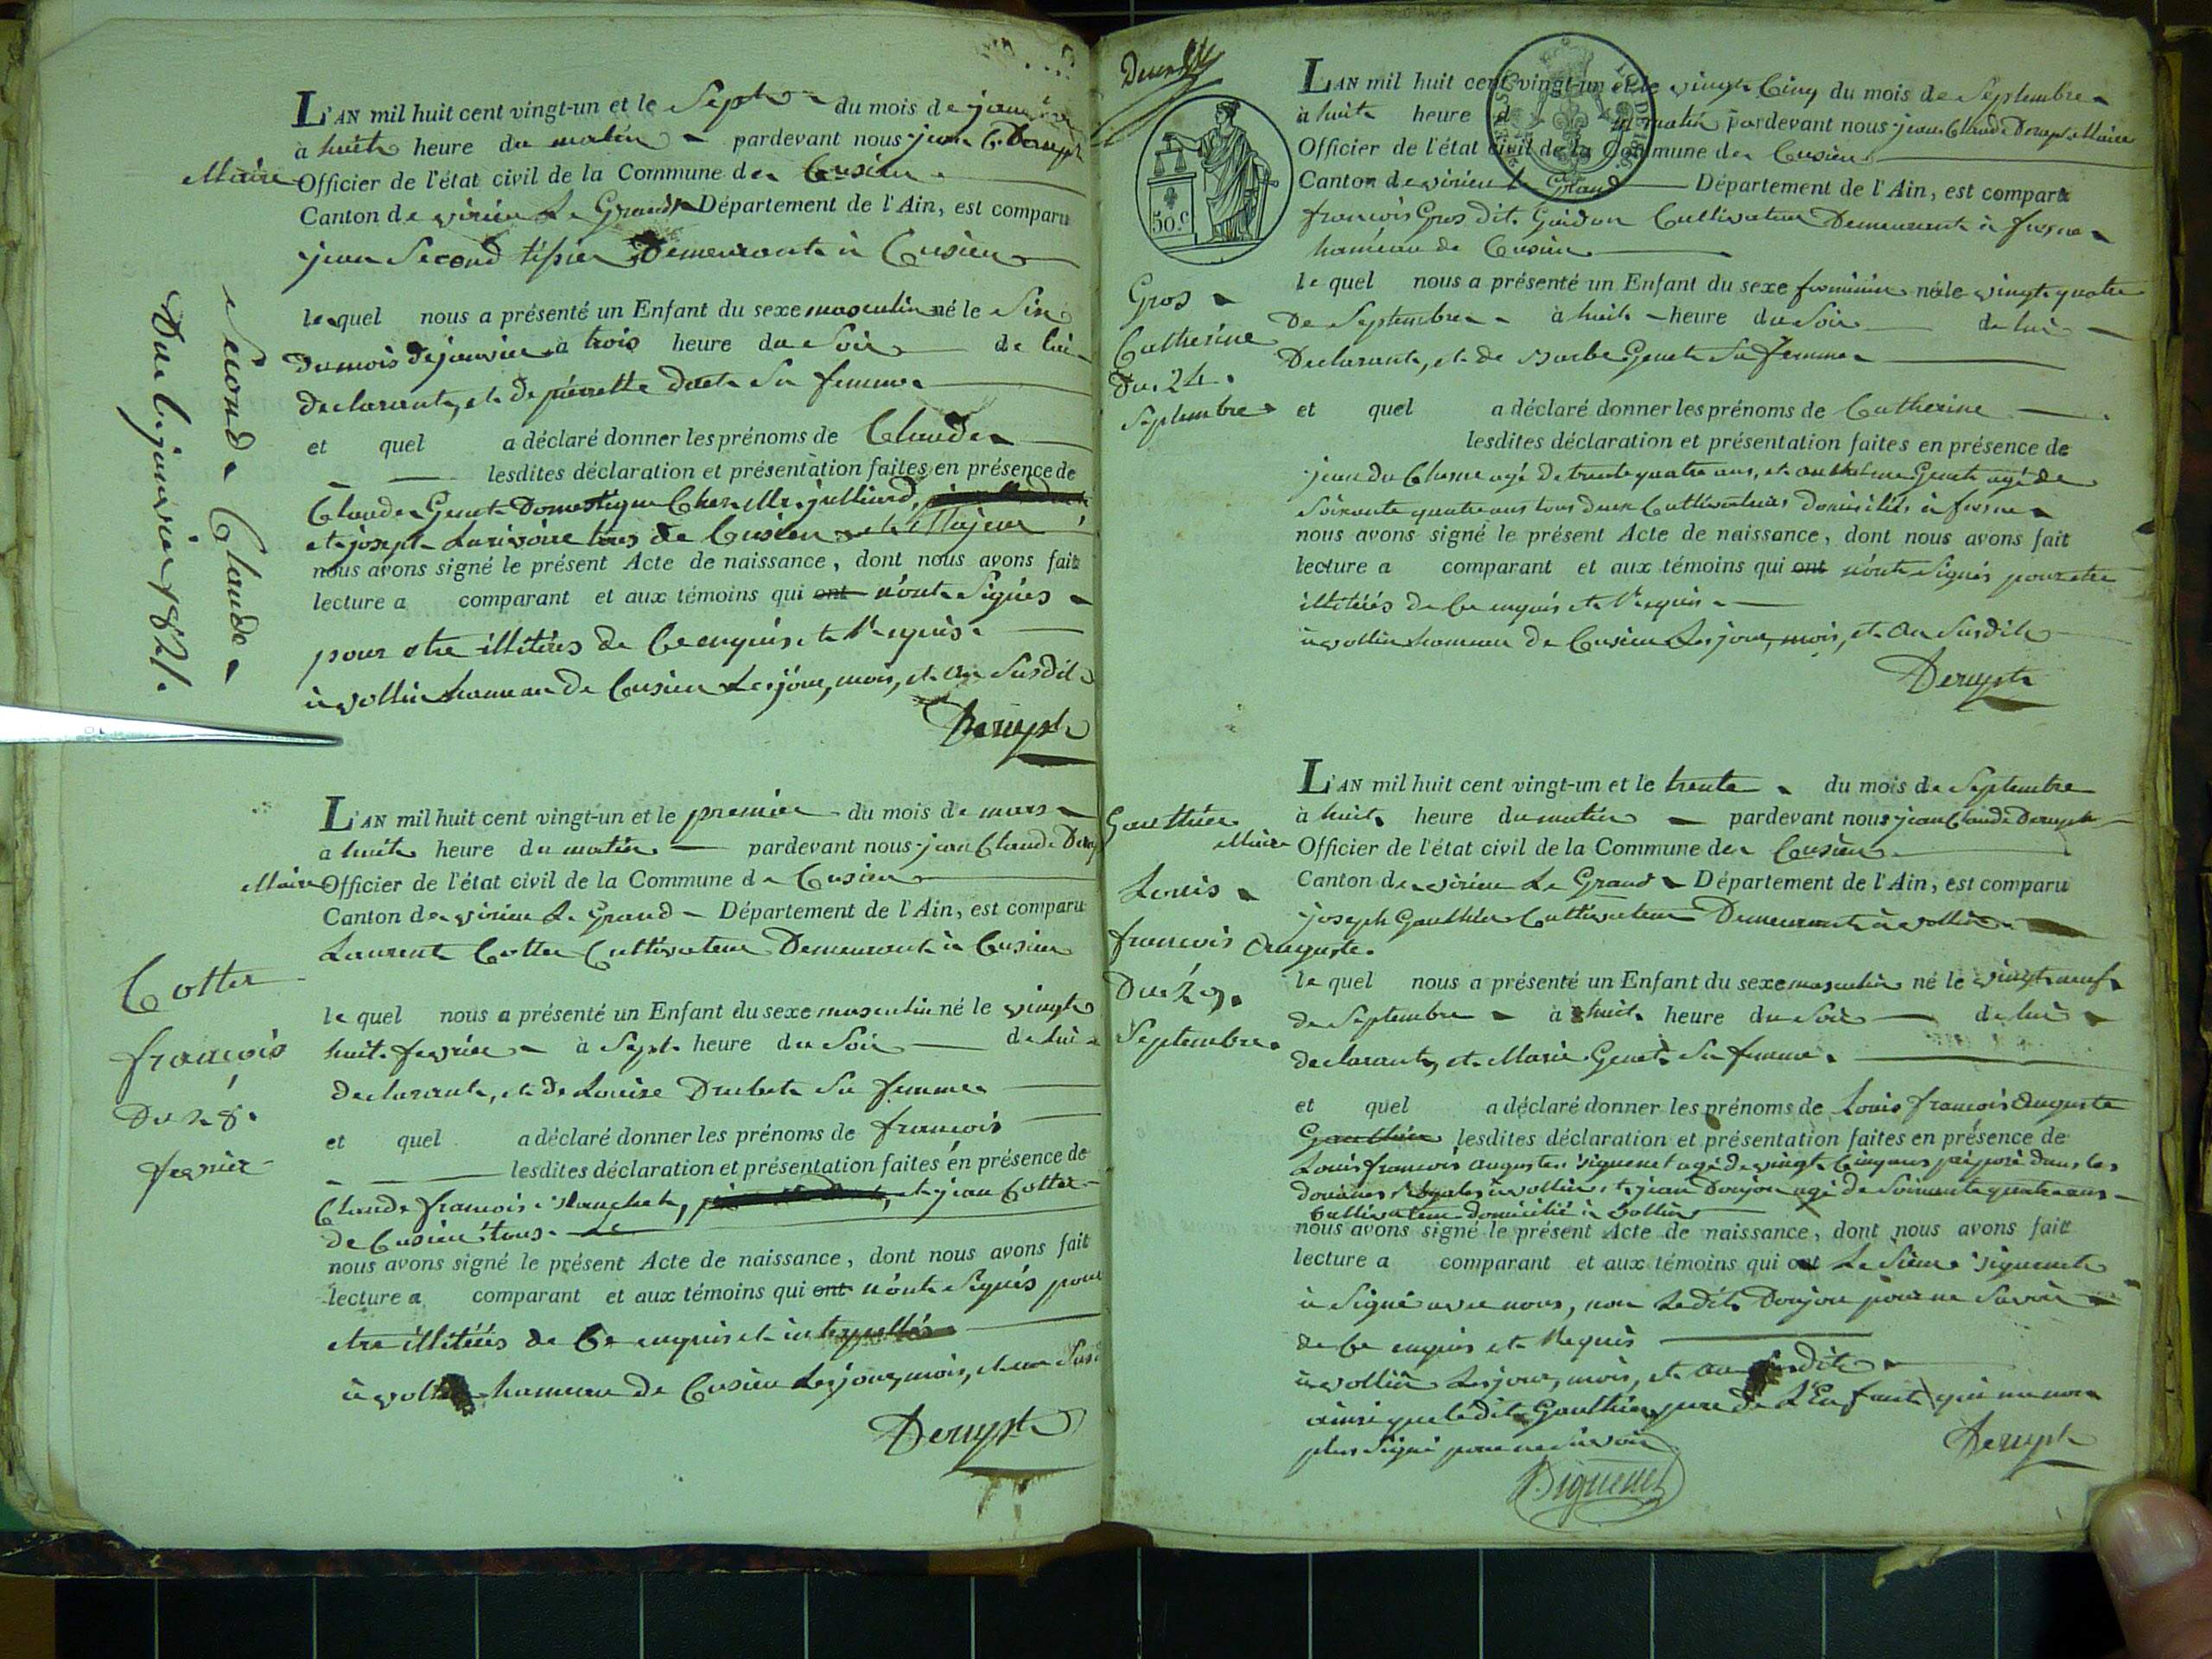 L'AN mil huit cent vingt-un et le Sept du mois de janvier
a huit heure du matin pardevant nous jean C. Deruypt
Maire Officier de l'état civil de la Commune de Cusieu
Canton de virieu Le Grand Département de l'Ain, est comparu
jean Second tissier Demeurant à Cusieu
le quel nous a présenté un Enfant du sexe masculin né le Six
Du mois De janvier à trois heure du Soir de lui
Declarant, et de pierrette sa femme
et quel a déclaré donner les prénoms de Claude
lesdites déclaration et présentation faites en présence de
Claude Genet Domestique Chez Mr. julliard,
et joseph Larivoire tous de Cusieu et Majeur
nous avons signé le présent Acte de naissance, dont nous avons fait
lecture a comparant et aux témoins qui ont n'ont Signés
pour etre illitérés de Ce enquis et Requis.
à vollien hameau de Cusieu Les jour, mois, et an Susdit
Deruypt
Second Claude
Du 6 janvier 1821.
L'AN mil huit cent vingt-un et le premier du mois de mars
a huit heure du matin pardevant nous jean Claude Deruy
Maire Officier de l'état civil de la Commune de Cusieu
Canton de virieu Le Grand Département de l'Ain, est comparu
Laurent Cotter Cultivateur Demeurant à Cusieu
le quel nous a présenté un Enfant du sexe masculin né le vingt
huit fevrier à Sept heure du Soir de lui
declarant, et de Louise Drubet Sa femme
et quel a déclaré donner les prénoms de francois
lesdites déclaration et présentation faites en présence de
Claude francois et jean Cotter
de Cusieu tous
nous avons signé le présent Acte de naissance, dont nous avons fait
lecture a comparant et aux témoins qui ont n'ont Signés pour
etre illitérés de Ce enquis et interpellés
à hameau de Cusieu Les jour, mois, et an Susd
Deruypt
Cotter
francois
Du 28.
fevrier
50 C
L'AN mil huit cent vingt-un et le vingt Cinq du mois de Septembre
à huit heure du matin pardevant nous jean Claude Deruypt Maire
Officier de l'état civil de la Commune de Cusieu
Canton de virieu Le Grand Département de l'Ain, est comparu
francois Gros dit Guidon Cultivateur Demeurant à
hameau de Cusieu
le quel nous a présenté un Enfant du sexe feminin né le vingt quatre
De Septembre à huit heure du Soir de lui
Declarant, et de Barbe Genet Sa femme
et quel a déclaré donner les prénoms de Catherine
lesdites déclaration et présentation faites en présence de
jean agé de trente quatre ans, et Genet agé de
Soixante quatre ans tous deux Cultivateurs domiciliés à
nous avons signé le présent Acte de naissance, dont nous avons fait
lecture a comparant et aux témoins qui ont n'ont Signés pour etre
illitérés de Ce enquis et Requis
à vollien hameau de Cusieu Les jour, mois, et an Susdit
Deruypt
Gros
Catherine
Du 24.
Septembre
L'AN mil huit cent vingt-un et le trente du mois de Septembre
à huit heure du matin pardevant nous jean Claude Deruypt
Maire Officier de l'état civil de la Commune de Cusieu
Canton de virieu Le Grand Département de l'Ain, est comparu
joseph Gauthier Cultivateur Demeurant à vollien
le quel nous a présenté un Enfant du sexe masculin né le vingt neuf
de Septembre à huit heure du Soir de lui
declarant, et Marie Genet Sa femme.
et quel a déclaré donner les prénoms de Louis francois Auguste
Gauthier lesdites déclaration et présentation faites en présence de
Louis francois auguste viguenet agé de vingt Cinq ans préposé dans les
douanes Royales à vollien et jean Donjon agé de Soixante quatre ans
Cultivateur domicilié à vollien
nous avons signé le présent Acte de naissance, dont nous avons fait
lecture a comparant et aux témoins qui ont Le Sieur viguenet
à Signé avec nous, non Ledit Donjon pour ne Savoir
de Ce enquis et Requis
à vollien Les jour, mois, et an Susdit
ainsi que ledit Gauthier pere de L'Enfant qui na non
plus Signé pour ne Savoir
Deruypt
Viguenet
Gauthier
Louis
francois Auguste.
Du 29.
Septembre.